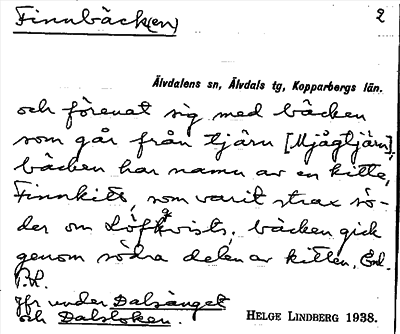 Finnbäck(en) 2
Älvdalens sn, Älvdals tg, Kopparbergs län.
och förenat sig med bäcken
som går från tjärn [Mjågtjärn];
bäcken har namn av en kitte,
Finnkitt, som varit strax sö-
der om Löfkvists, bäcken gick
genom södra delen av kitten. Ed.
P.L.
Jfr under Dalsänget
och Dalsloken.
HELGE LINDBERG 1938.